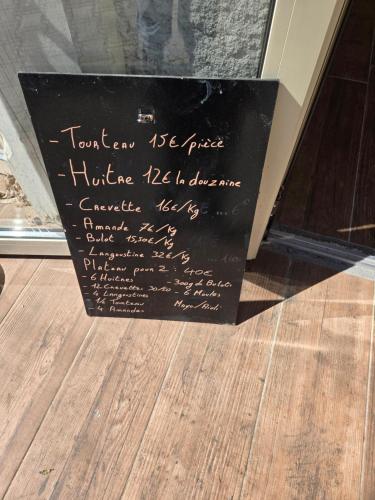 - Tourteau 15€/pièce
- Huitre 12€ la douzaine
- Crevette 16€/Kg
- Amande 7€/Kg
- Bulot 15,50€/Kg
- Langoustine 32€/Kg
Plateau pour 2 : 40€
- 6 Huitres - 300g de Bulots
- 12 Crevettes 30/50 - 6 Moules
- 4 Langoustines
- 1/2 Tourteau Mayo/Aïoli
- 4 Amandes